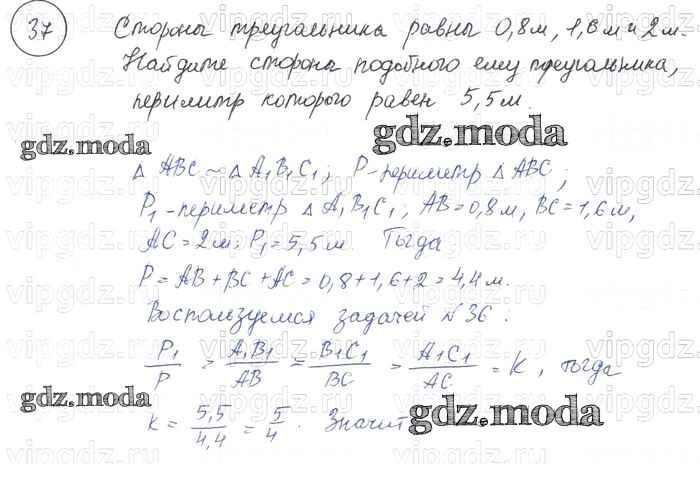 37 Стороны треугольника равны 0,8м, 1,6м и 2м.
Найдите стороны подобного ему треугольника,
периметр которого равен 5,5м.
gdz.moda
gdz.moda
△ABC ~ △A₁B₁C₁; P-периметр △ABC;
P₁-периметр △A₁B₁C₁; AB=0,8м, BC=1,6м,
AC=2м; P₁=5,5м. Тогда
P=AB+BC+AC=0,8+1,6+2=4,4м.
Воспользуемся задачей №36:
P₁/P = A₁B₁/AB = B₁C₁/BC = A₁C₁/AC = k, тогда
gdz.moda
k = 5,5/4,4 = 5/4. Значит
gdz.moda